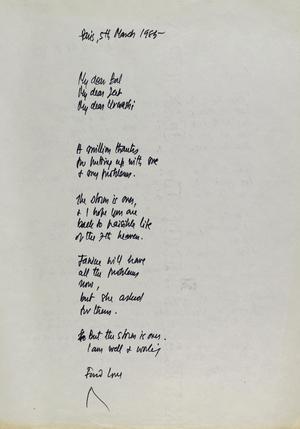 Paris, 5th March 1985
My dear Bal
My dear Jeet
My dear Urvashi
A million thanks
for putting up with me
& my problems.
The storm is over,
& I hope you are
back to peaceful life
of the 7th heaven.
Janine will have
all the problems
now,
but she asked
for them.
But the storm is over.
I am well & working
Fond Love